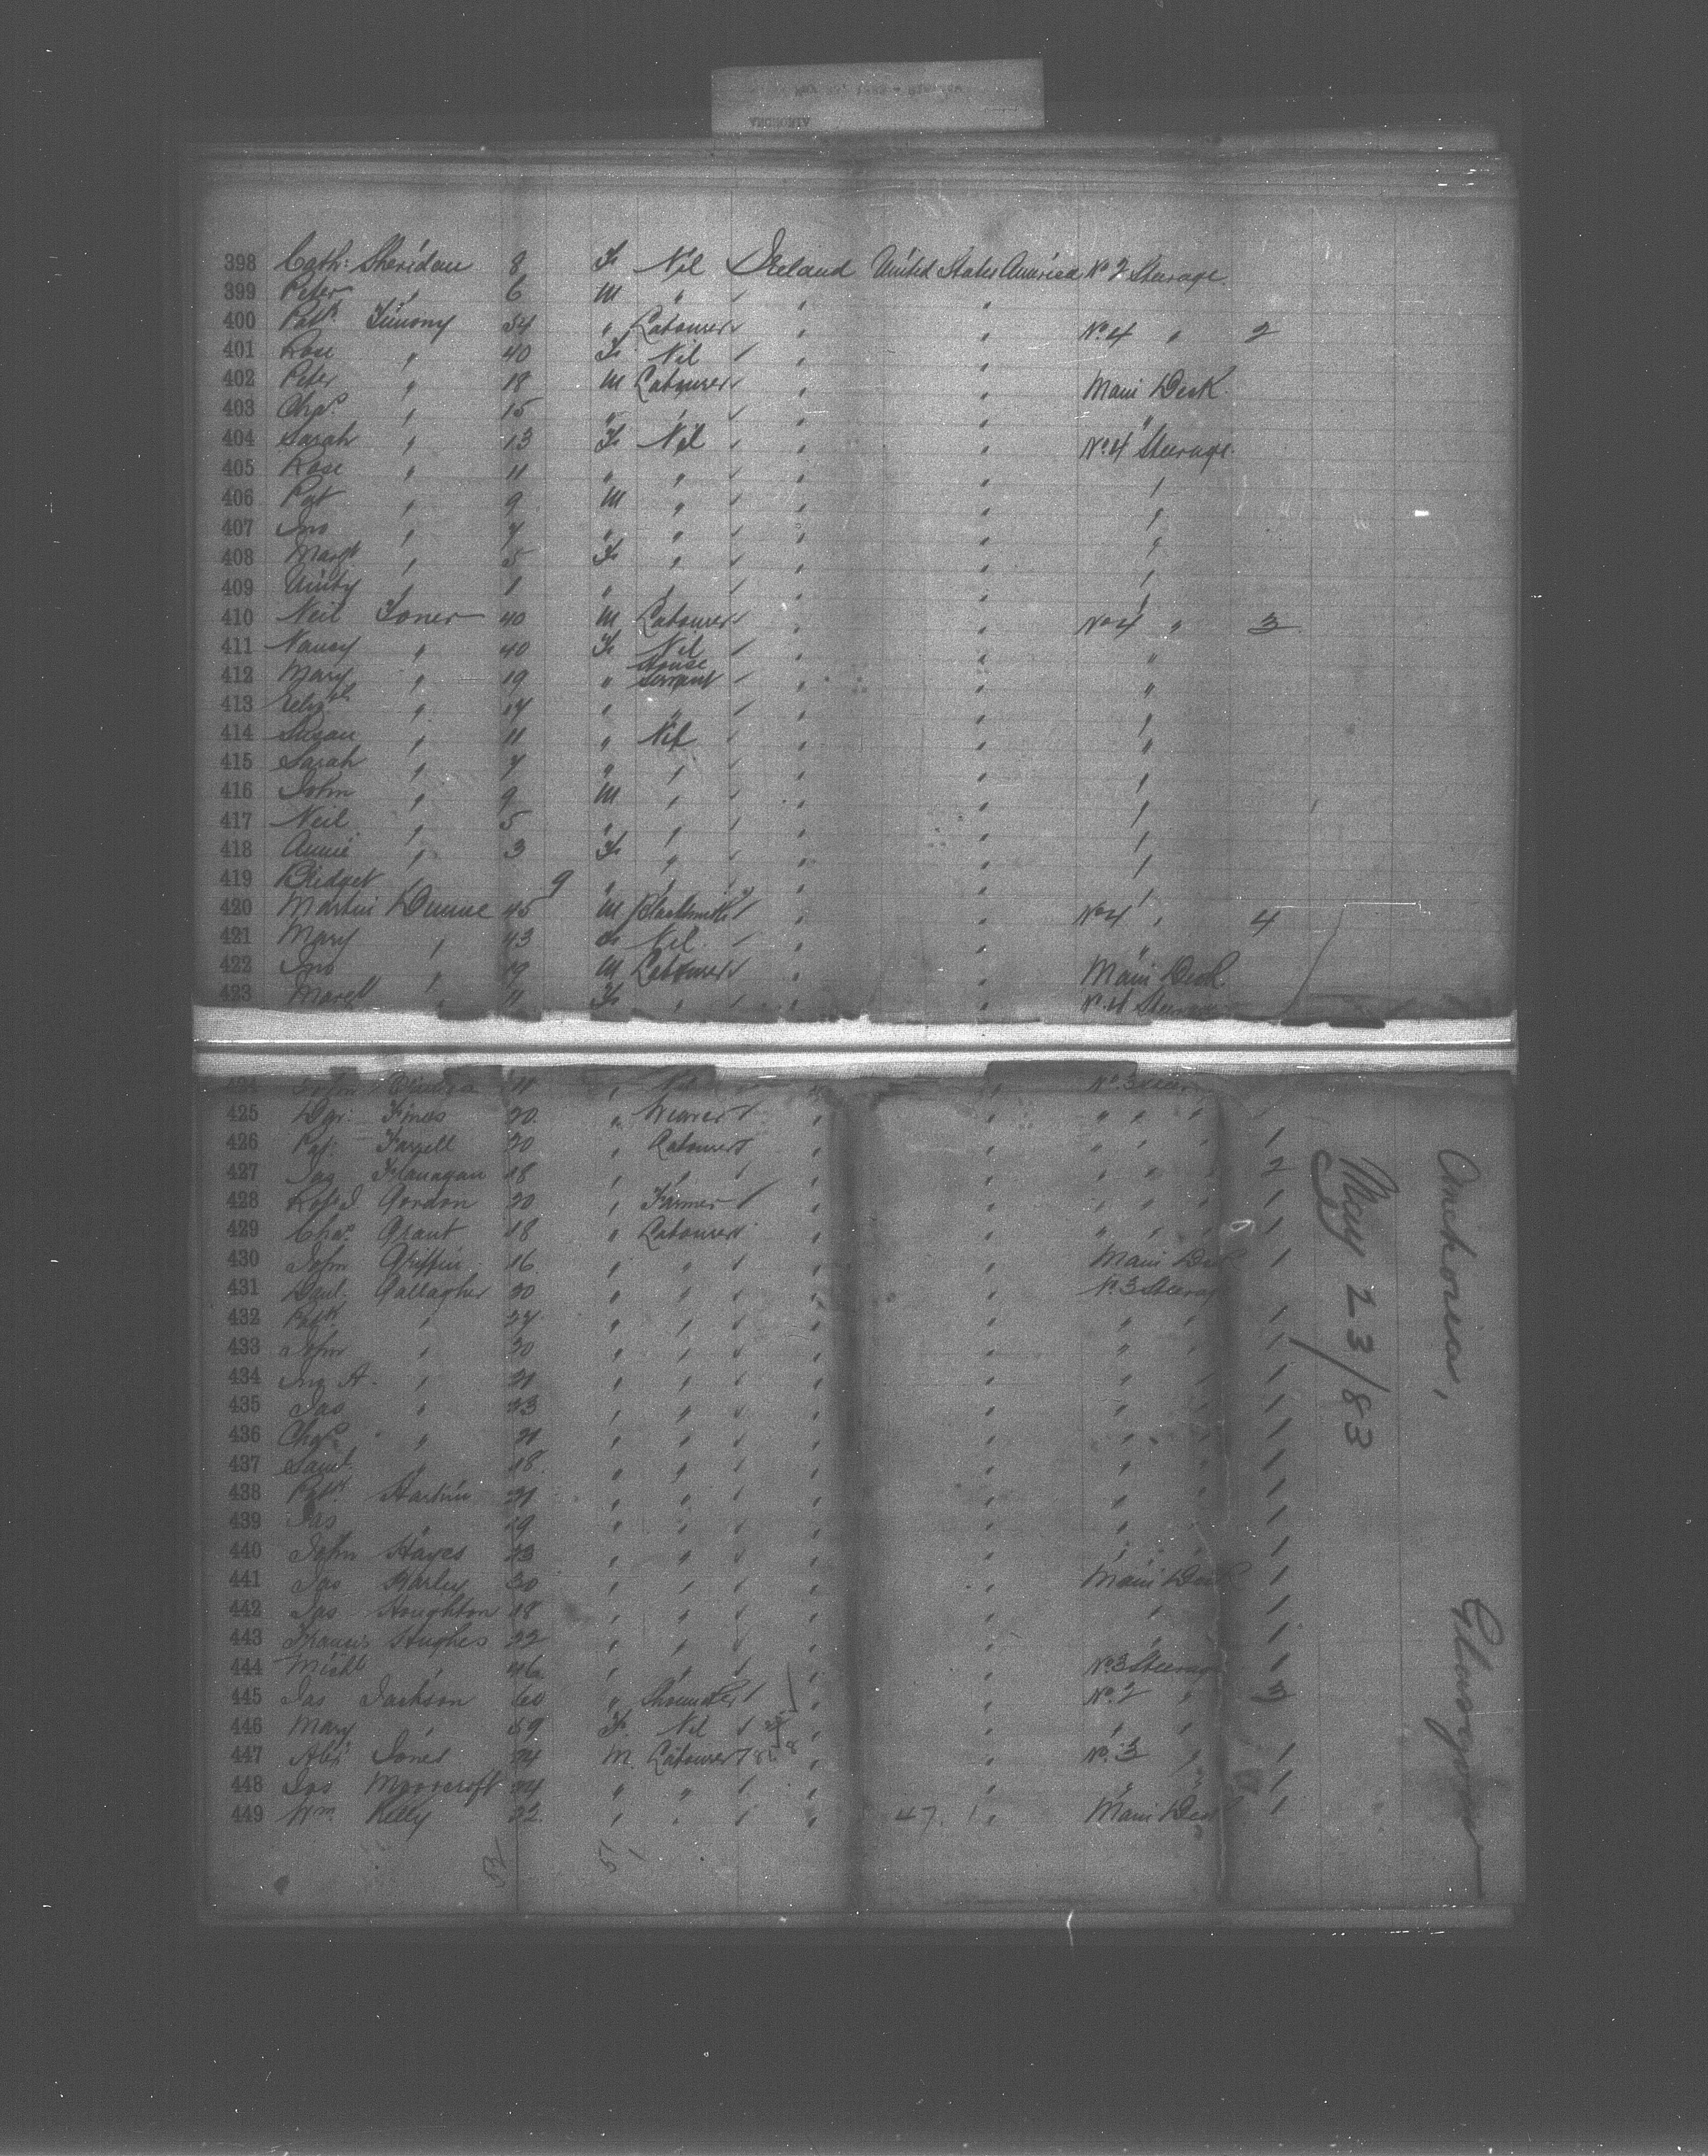 398 Cath: Sheridan 8 F Nil Ireland United States America No 2 Steerage
399 Peter " 6 M " " "
400 Patk Timony 34 " Labourer " " No 4 " 2
401 Rose " 40 F Nil " "
402 Peter " 18 M Labourer " " Main Deck
403 Chas " 15 " " " " "
404 Sarah " 13 F Nil " " No 4 Steerage
405 Rose " 11 " " " " "
406 Pat " 9 M " " " "
407 Jno " 7 " " " " "
408 Margt " 5 F " " " "
409 Unity " 1 " " " " "
410 Neil Toner 40 M Labourer " " No 4 " 3
411 Nancy " 40 F Nil " " "
412 Mary " 19 " House Servant " " "
413 Elizth " 14 " " " " "
414 Susan " 11 " Nil " " "
415 Sarah " 7 " " " " "
416 John " 9 M " " " "
417 Neil " 5 " " " " "
418 Annie " 3 F " " " "
419 Bridget " 9 " " " " "
420 Martin Dunne 45 M Blacksmith " " No 4 " 4
421 Mary " 43 F Nil " " "
422 Jno " 19 M Labourer " " Main Deck
423 Margt " 11 F " " " No 4 Steerage
424 John " Nil " " No 3
425 20 " Weaver " " " " "
426 Pat. Farrell 20 " Labourer " " " " " 1
427 Jas Flanagan 18 " " " " " " " 2
428 Robt J Gordon 20 " Farmer " " " " " 1
429 Chas Grant 18 " Labourer " " " " " 1
430 John Griffin 16 " " " " Main Deck 1
431 Danl. Gallagher 30 " " " " No 3 Steerage
432 Patk " 27 " " " " " " 1
433 John " 30 " " " " " " 1
434 Jno A. " 21 " " " " " " 1
435 Jas " 23 " " " " " " 1
436 Chas " 21 " " " " " " 1
437 Saml " 18 " " " " " " 1
438 Patk Harkin 21 " " " " " " 1
439 Jas " 19 " " " " " "
440 John Hayes 23 " " " " " " 1
441 Jas Harley 30 " " " " Main Deck 1
442 Jas Houghton 18 " " " " " 1
443 Francis Hughes 22 " " " " " 1
444 Michl " 46 " " " " No 3 Steerage 1
445 Jas Jackson 60 " Shoemaker " " No 2 " 3
446 Mary " 59 F Nil " " " "
447 Alex Jones 24 M Labourer " " No 3 " 1
448 Jas Moorcroft 24 " " " " " " 1
449 Wm Kelly 22 " " " 47 " Main Deck 1
51
Anchoria,
Glasgow
May 23/83
ANCHORIA